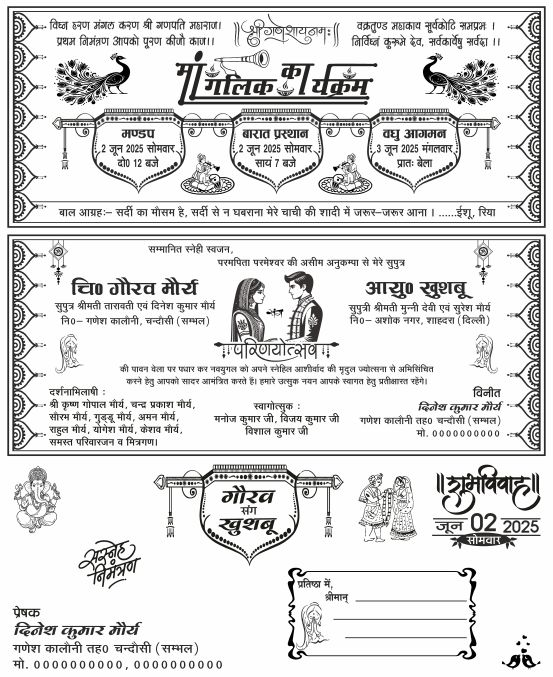 विघ्न हरण मंगल करण श्री गणपति महाराज।
प्रथम निमंत्रण आपको पूरण कीजौ काज।।
॥श्री गणेशाय नमः॥
वक्रतुण्ड महाकाय सूर्यकोटि समप्रभ ।
निर्विघ्नं कुरूमे देव, सर्वकार्येषु सर्वदा ।।
मांगलिक कार्यक्रम
मण्डप
2 जून 2025 सोमवार
दो0 12 बजे
बारात प्रस्थान
2 जून 2025 सोमवार
सायं 7 बजे
वधु आगमन
3 जून 2025 मंगलवार
प्रातः बेला
बाल आग्रहः- सर्दी का मौसम है, सर्दी से न घबराना मेरे चाची की शादी में जरूर-जरूर आना । ......ईशू, रिया
सम्मानित स्नेही स्वजन,
परमपिता परमेश्वर की असीम अनुकम्पा से मेरे सुपुत्र
चि0 गौरव मौर्य
सुपुत्र श्रीमती तारावती एवं दिनेश कुमार मौर्य
नि0- गणेश कालौनी, चन्दौसी (सम्भल)
आयु0 खुशबू
सुपुत्री श्रीमती मुन्नी देवी एवं सुरेश मौर्य
नि0- अशोक नगर, शाहदरा (दिल्ली)
परिणयोत्सव
की पावन वेला पर पधार कर नवयुगल को अपने स्नेहिल आशीर्वाद की मृदुल ज्योत्सना से अभिसिंचित
करने हेतु आपको सादर आमंत्रित करते हैं। हमारे उत्सुक नयन आपके स्वागत हेतु प्रतीक्षारत रहेंगे।
दर्शनाभिलाषी :
श्री कृष्ण गोपाल मौर्य, चन्द्र प्रकाश मौर्य,
सौरभ मौर्य, गुड्डू मौर्य, अमन मौर्य,
राहुल मौर्य, योगेश मौर्य, केशव मौर्य,
समस्त परिवारजन व मित्रगण।
स्वागोत्सुक :
मनोज कुमार जी, विजय कुमार जी
विशाल कुमार जी
विनीत
दिनेश कुमार मौर्य
गणेश कालौनी तह0 चन्दौसी (सम्भल)
मो. 0000000000
गौरव
संग
खुशबू
॥शुभविवाह॥
जून 02 2025
सोमवार
सस्नेह
निमंत्रण
प्रतिष्ठा में,
श्रीमान्
प्रेषक
दिनेश कुमार मौर्य
गणेश कालौनी तह0 चन्दौसी (सम्भल)
मो. 0000000000, 0000000000